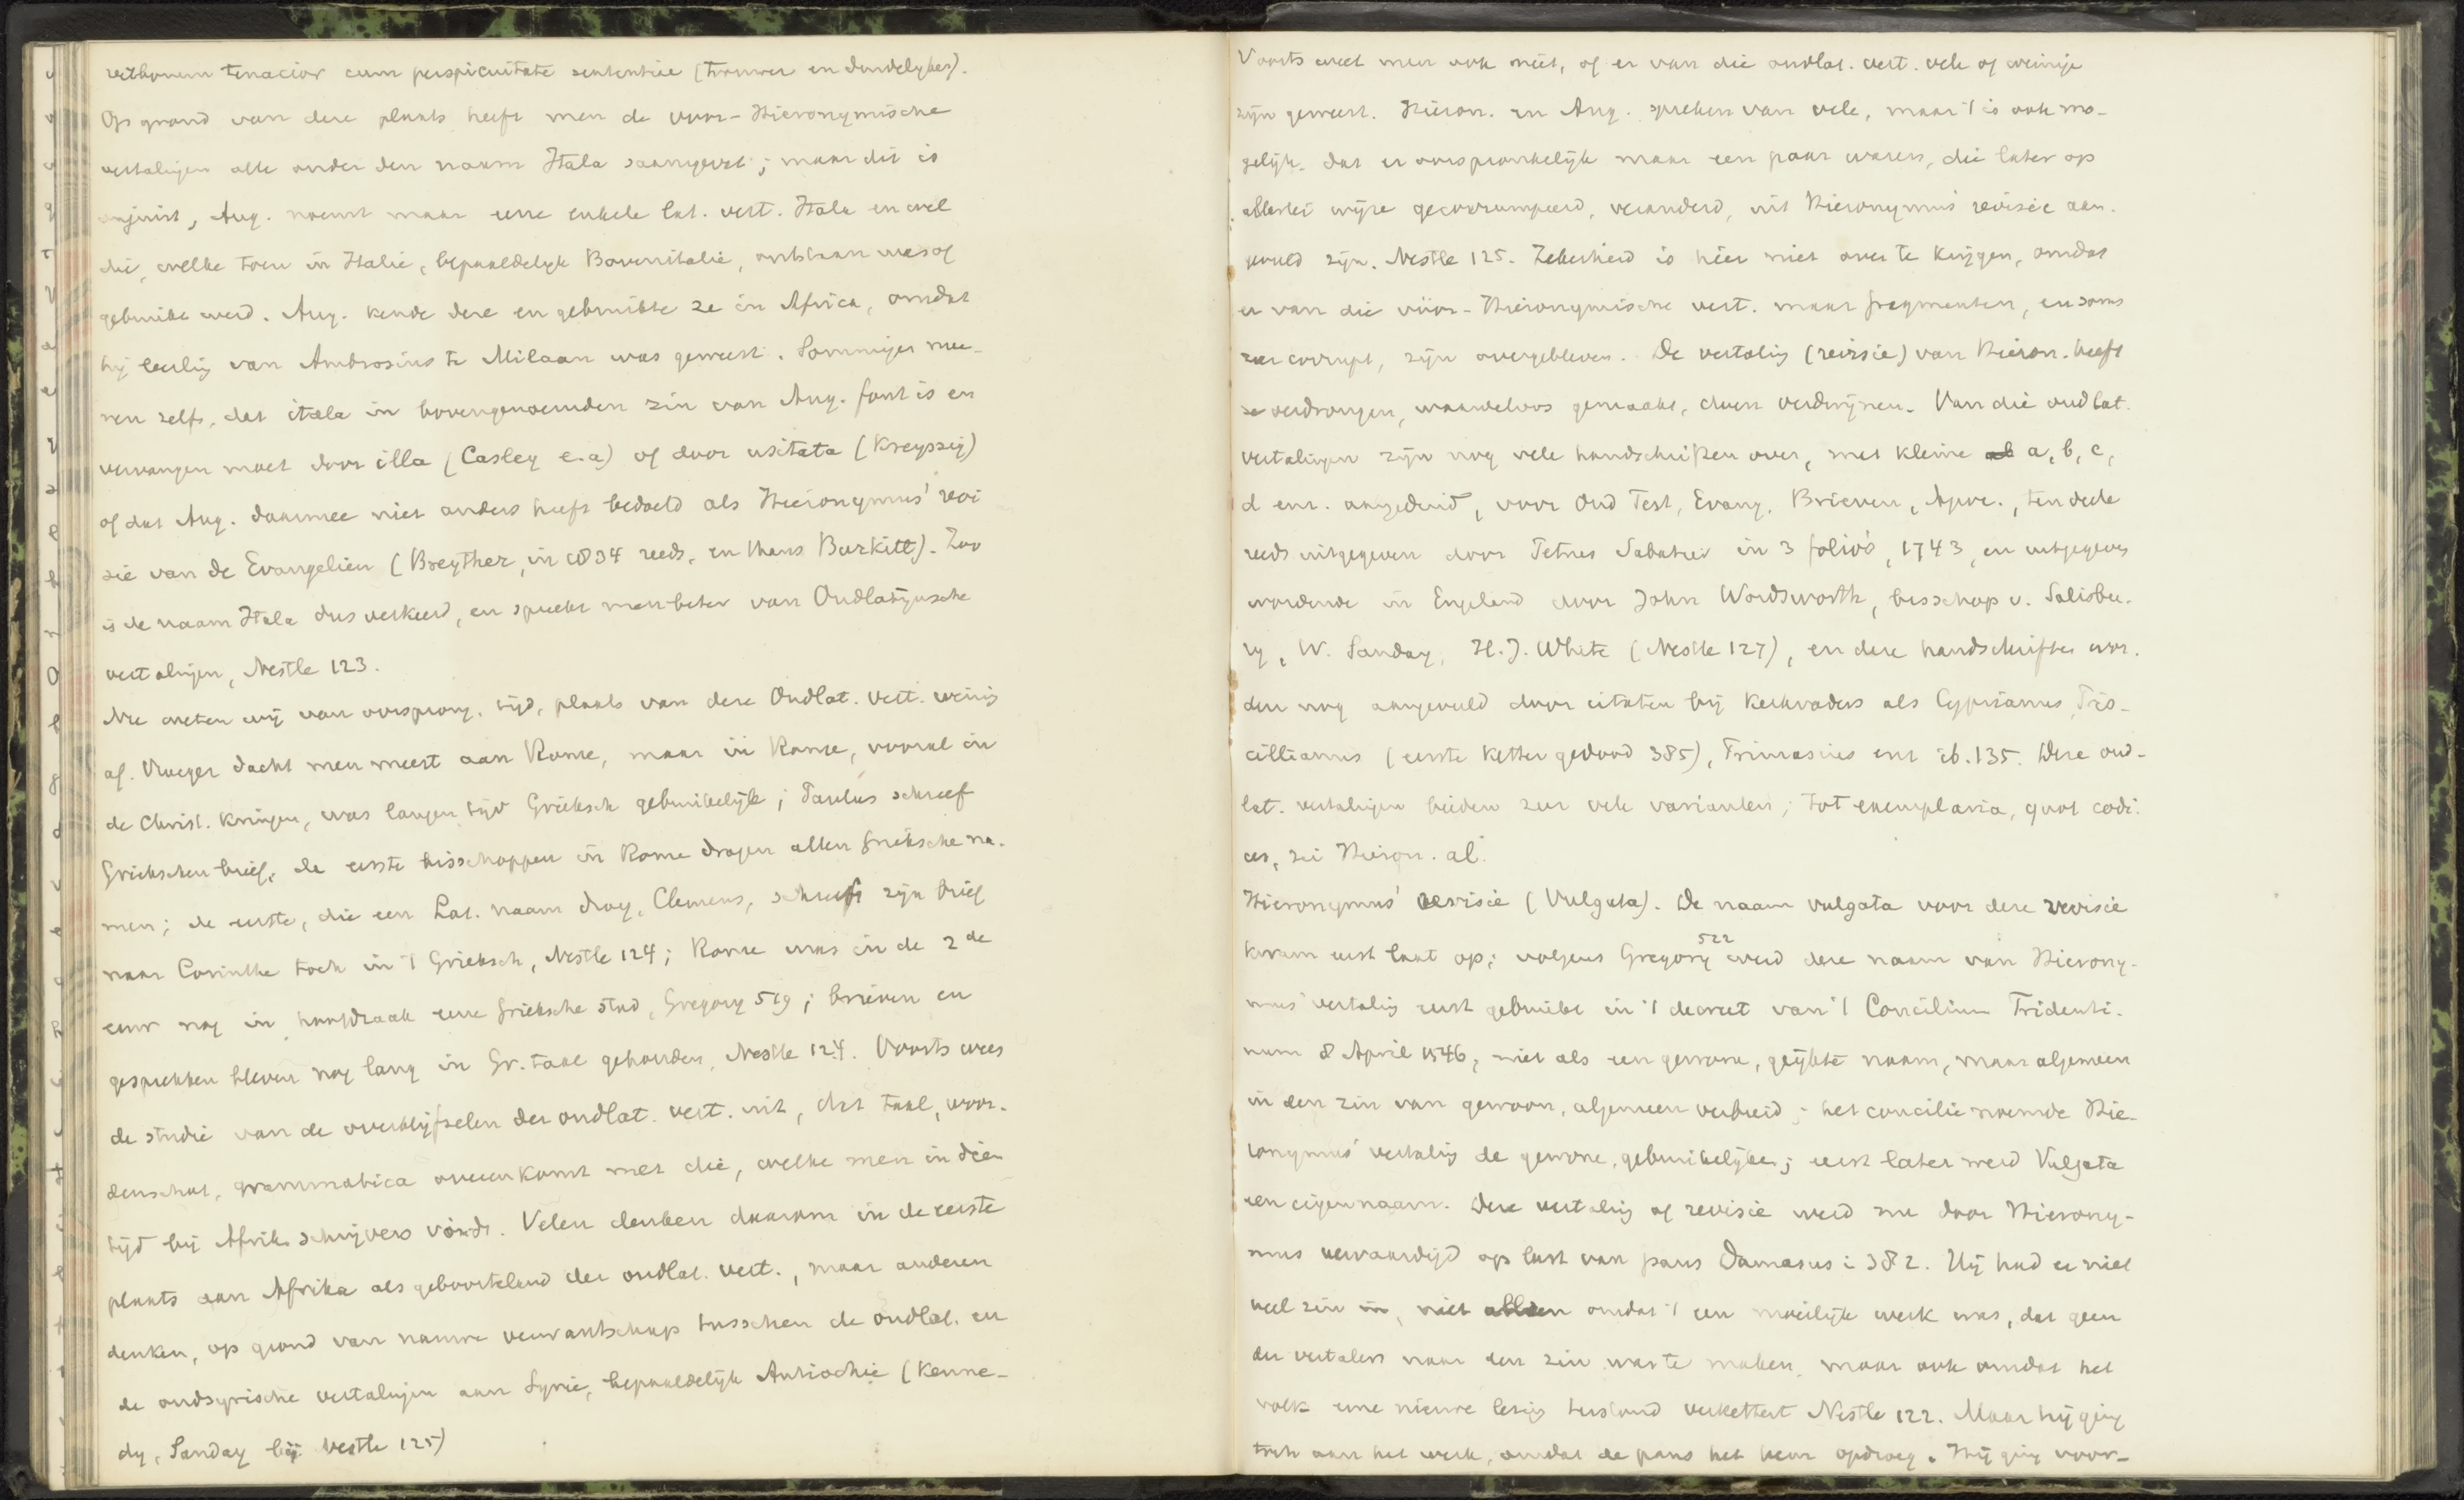 verborum tenacior cum perspicuitate sententiae (trouwer en duidelyker).
Op grond van deze plaats heeft men de voor-Hieronymische
vertalingen alle onder den naam Itala saamgevat; maar dit is
onjuist, Aug. noemt maar eene enkele lat. vert. Itala en wel
die, welke toen in Italie, bepaaldelyk Bovenitalie, ontstaan was of
gebruikt werd. Aug. kende deze en gebruikte ze in Africa, omdat
hij leerling van Ambrosius te Milaan was geweest. Sommigen mee-
nen zelfs, dat itala in bovengenoemden zin van Aug. fout is en
vervangen moet door illa (Casley e.a) of door usitata (Kreyssig)
of dat Aug. daarmee niet anders heeft bedoeld als Hieronymus' revi
sie van de Evangelien (Breyther, in 1834 reeds, en thans Burkitt). Zoo
is de naam Itala dus verkeerd, en spreekt men beter van Oudlatijnsche
vertalingen, Nestle 123.
Nu weten wij van oorsprong, tijd, plaats van deze Oudlat. vert. weinig
af. Vroeger dacht men meest aan Rome, maar in Rome, vooral in
de Christ. kringen, was langen tijd Grieksch gebruikelijk; Paulus schreef
Griekschen brief, de eerste bisschoppen in Rome dragen allen Grieksche na-
men; de eerste, die een Lat. naam droeg, Clemens, schreef zijn brief
naar Corinthe toch in 't Grieksch, Nestle 124; Rome was in de 2de
eeuw nog in hoofdzaak eene Grieksche stad, Gregory 519; brieven en
gesprekken bleven nog lang in Gr. taal gehouden, Nestle 124. Voorts wees
de studie van de overblijfselen der oudlat. vert. uit, dat taal, woor-
denschat, grammatica overeenkomt met die, welke men in dien
tijd bij Afrik. schrijvers vindt. Velen denken daarom in de eerste
plaats aan Afrika als geboorteland der oudlat. vert., maar anderen
denken, op grond van nauwe verwantschap tusschen de oudlat. en
de oudsyrische vertalingen aan Syrie, bepaaldelijk Antiochie (Kenne-
dy, Sanday bij Nestle 125)
Voorts weet men ook niet, of er van die oudlat. vert. vele of weinige
zijn geweest. Hieron. en Aug. spreken van vele, maar 't is ook mo-
gelijk, dat er oorspronkelijk maar een paar waren, die later op
allerlei wijze gecorrumpeerd, veranderd, uit Hieronymus' revisie aan-
gevuld zijn. Nestle 125. Zekerheid is hier niet over te krijgen, omdat
er van die vóór-Hieronymische vert. maar fragmenten, en soms
zeer corrupt, zijn overgebleven. De vertaling (revisie) van Hieron. heeft
ze verdrongen, waardeloos gemaakt, doen verdwijnen. Van die oudlat.
vertalingen zijn nog vele handschriften over, met kleine a, b, c,
d enz. aangeduid, voor Oud Test, Evang, Brieven, Apoc., ten deele
reeds uitgegeven door Petrus Sabatier in 3 folio's, 1743, en uitgegeven
wordende in Engeland door John Wordsworth, bisschop v. Salisbu-
ry, W. Sanday, H. J. White (Nestle 127), en deze handschriften wor-
den nog aangevuld door citaten bij kerkvaders als Cyprianus, Pris-
cillianus (eerste ketter gedood 385), Primasius enz ib. 135. Deze oud-
lat. vertalingen bieden zeer vele varianten; tot exemplaria, quot codi-
ces, zei Hieron. al.
Hieronymus' revisie (Vulgata). De naam vulgata voor deze revisie
kwam eerst laat op; volgens Gregory 522 werd deze naam van Hierony-
mus' vertaling eerst gebruikt in 't decreet van 't Concilium Tridenti-
num 8 April 1546, niet als een gewone, geijkte naam, maar algemeen
in den zin van gewoon, algemeen verbreid; het concilie noemde Hie-
ronymus' vertaling de gewone, gebruikelijke; eerst later werd Vulgata
een eigennaam. Deze vertaling of revisie werd nu door Hierony-
mus vervaardigd op last van paus Damasus i 382. Hij had er niet
veel zin in, niet alleen omdat 't een moeilijk werk was, dat geen
der vertalers naar den zin was te maken, maar ook omdat het
volk eene nieuwe lezing terstond verkettert Nestle 122. Maar hij ging
toch aan het werk, omdat de paus het hem opdroeg. Hij ging voor-